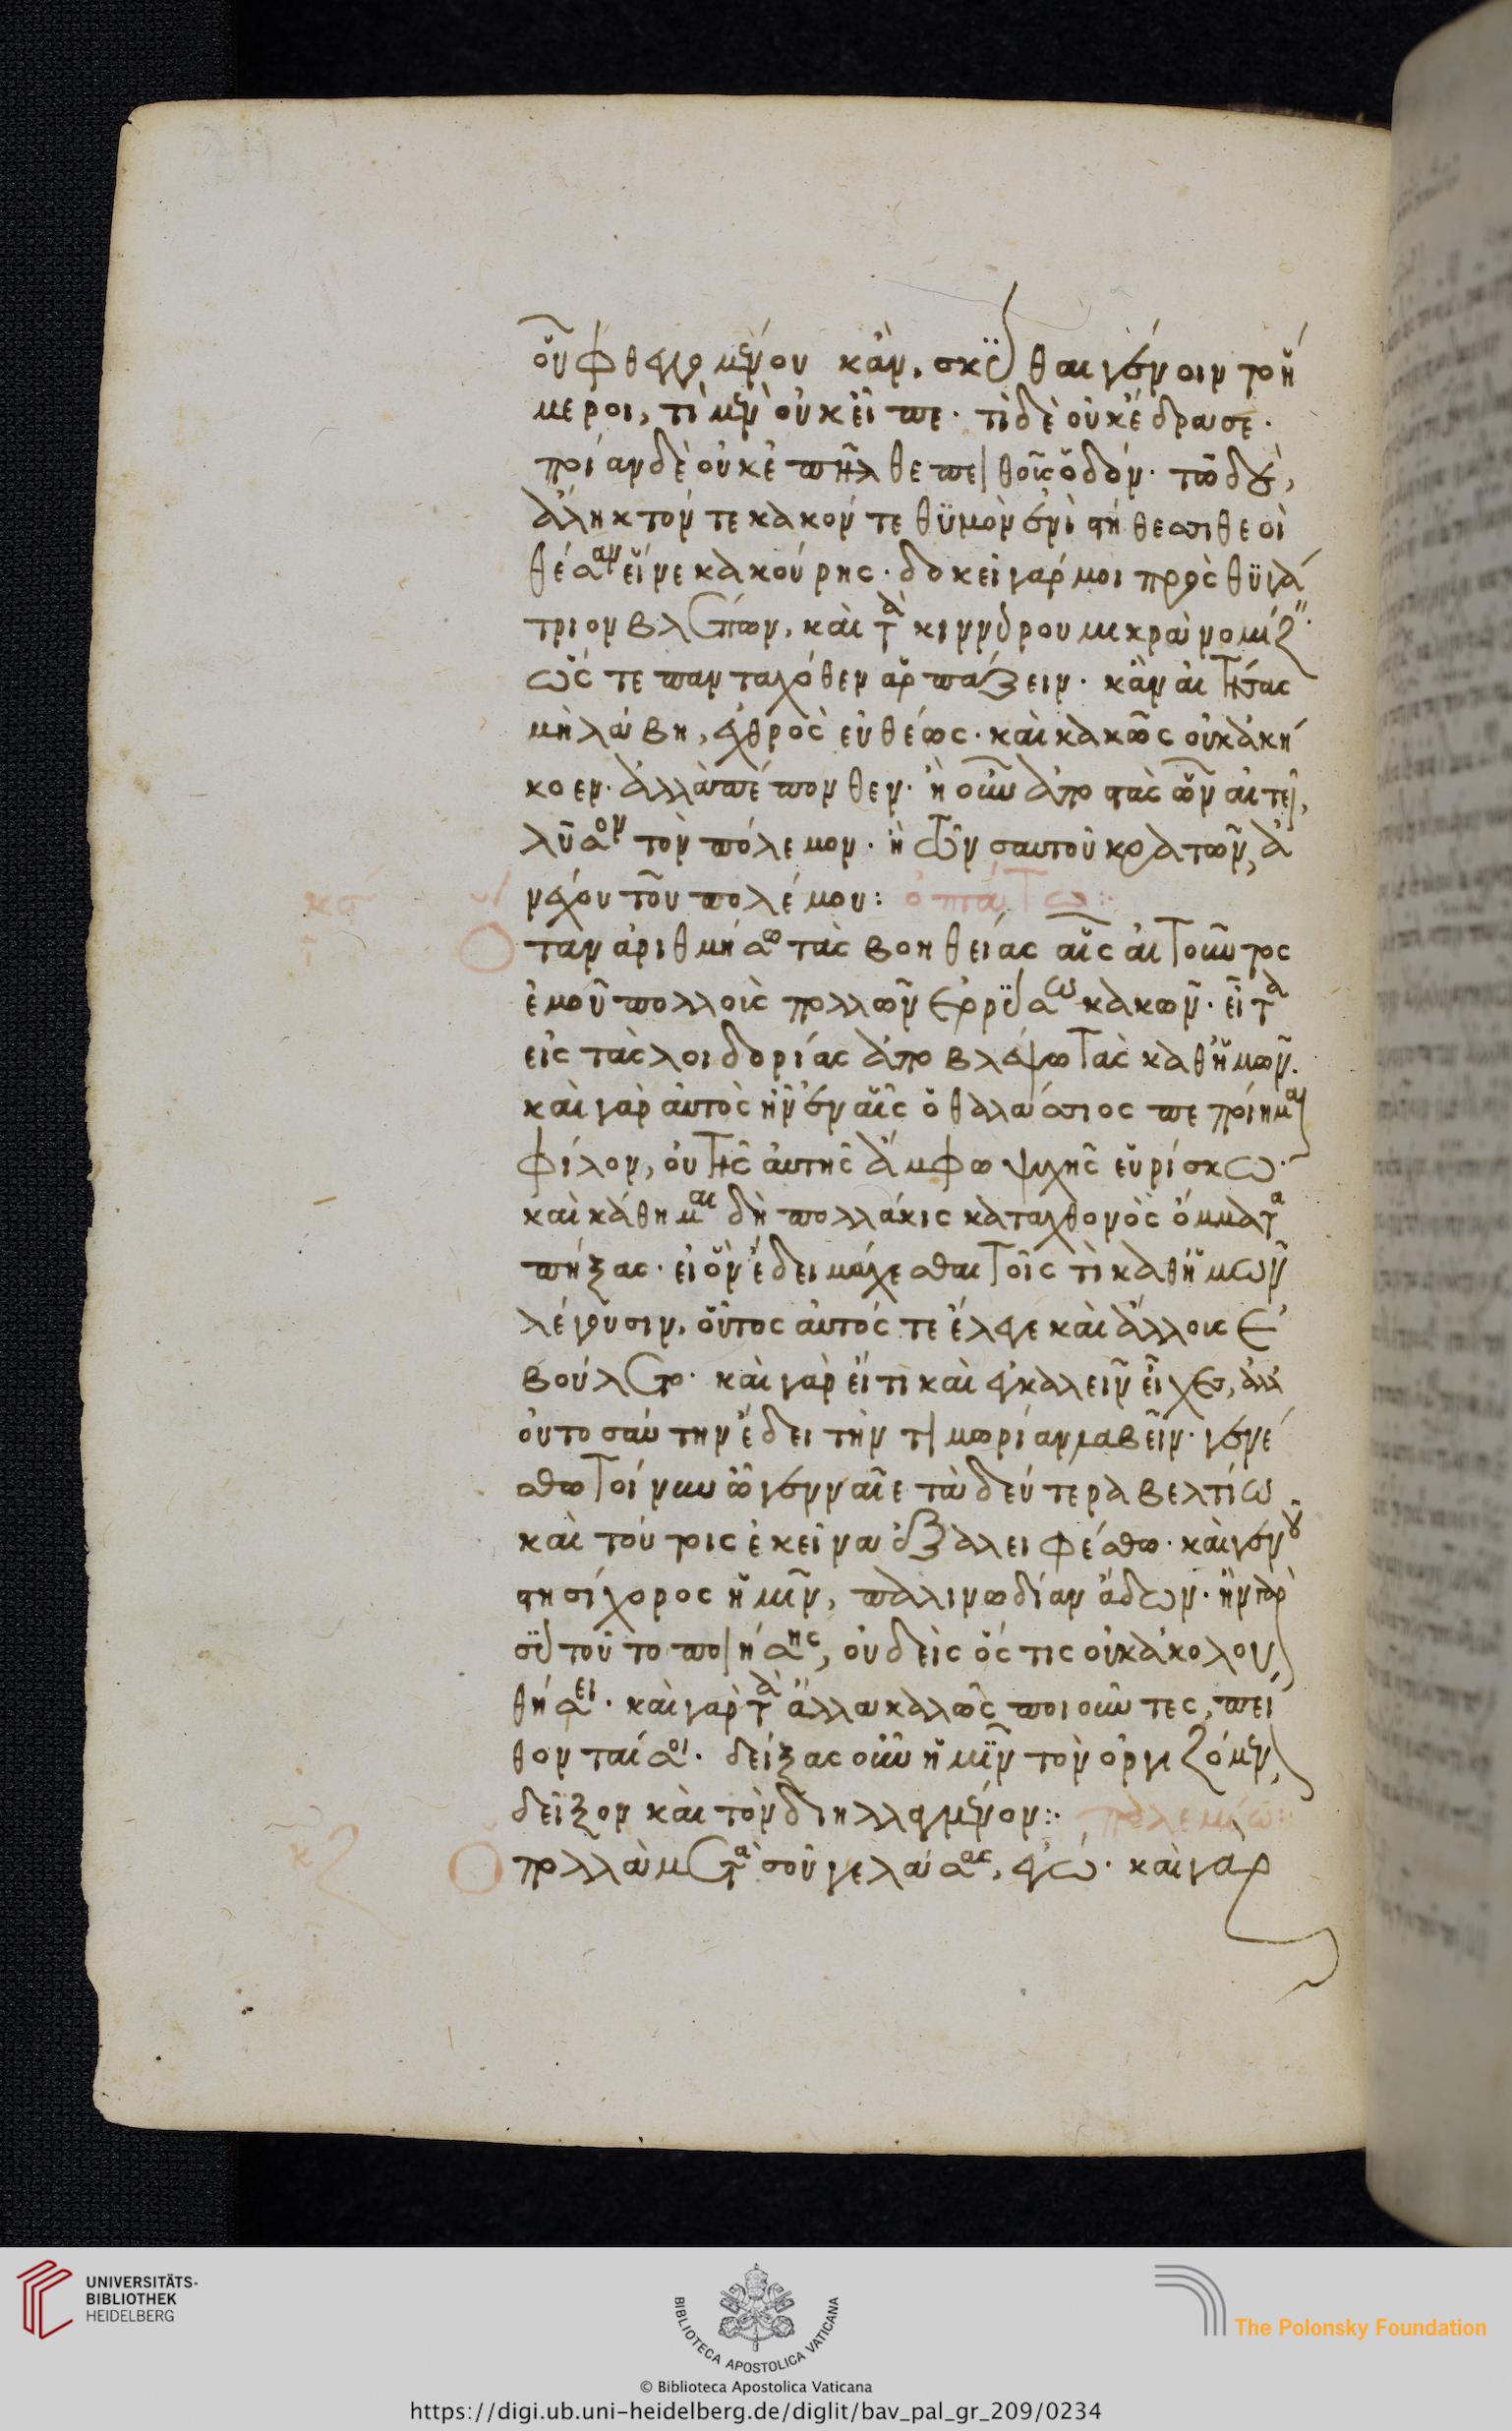 οὖν φθεγγομένου κἂν, σκεύεσθαι γένοιντο ἥ
μεροι, τί μὲν οὐκ εἶπε. τί δὲ οὐκ ἔδρασε.
ποίαν δὲ οὐκ ἐπῆλθε πειθοῦς ὁδόν. τῶ δ'
ἄληκτόν τε κακόν τε θυμὸν ἐνὶ στήθεσσι θεοὶ
θέσαν εἵνεκα κούρης. δοκεῖ γάρ μοι πρὸς θυγά
τριον βλέπων, καὶ τὰ κιννύρου μικρὰ νομίζειν
ὥς τε πανταχόθεν ἁρπάζειν. κἂν αἰτήσας
μὴ λάβη, ἐχθρὸς εὐθέως. καὶ κακῶς οὐκ ἀκή
κοεν. ἀλλὰ πέπονθεν. ἢ οὖν ἀποστὰς ὧν αἰτεῖ,
λῦσον τὸν πόλεμον. ἢ τῶν σαυτοῦ κρατῶν, ἀ
νέχου τοῦ πολέμου: ὀπτάτω:
Ὅταν ἀριθμήσω τὰς βοηθείας αἷς αἰτοῦντος
ἐμοῦ πολλοὺς πολλῶν ἐρρύσω κακῶν. εἶτα
εἰς τὰς λοιδορίας ἀποβλέψω τὰς καθ' ἡμῶν.
καὶ γὰρ αὐτὸς ἦν ἐν αἷς ὁ θαλάσσιος πεποίημαι
φίλον, οὐ τῆς αὐτῆς ἄμφω ψυχῆς εὑρίσκω.
καὶ κάθημαι δὴ πολλάκις κατὰ χθονὸς ὄμματα
πήξας. εἰ ὃν ἔδει μάχεσθαι τοῖς τὶ καθ' ἡμῶν
λέγουσιν, οὗτος αὐτός τε ἔλεγε καὶ ἄλλοις ἐ
βούλετο. καὶ γὰρ εἴ τι καὶ ἐγκαλεῖν εἶχεν, ἀλλ'
οὐ τοσαύτην ἔδει τὴν τιμωρίαν λαβεῖν. γενέ
σθω τοίνυν ὦ γενναῖε τὰ δεύτερα βελτίω
καὶ τούτοις ἐκεῖνα ἐξαλειφέσθω. καὶ γενοῦ
στησίχορος ἡμῖν, παλινωδίαν ἄδων. ἢν παρὰ
σοῦ τοῦτο ποιήσης, οὐδεὶς ὅς τις οὐκ ἀκολου
θήσει. καὶ γὰρ τὰ ἄλλα καλῶς ποιοῦντες, πεί
θονταί σοι. δείξας οὖν ἡμῖν τὸν ὀργιζόμενον,
δεῖξον καὶ τὸν διηλλαγμένον: πολεμίω:
Πολλὰ μετὰ σοῦ γελάσας, ἐγώ. καὶ γὰρ
κς
κζ
UNIVERSITÄTS-
BIBLIOTHEK
HEIDELBERG
BIBLIOTECA APOSTOLICA VATICANA
© Biblioteca Apostolica Vaticana
The Polonsky Foundation
https://digi.ub.uni-heidelberg.de/diglit/bav_pal_gr_209/0234